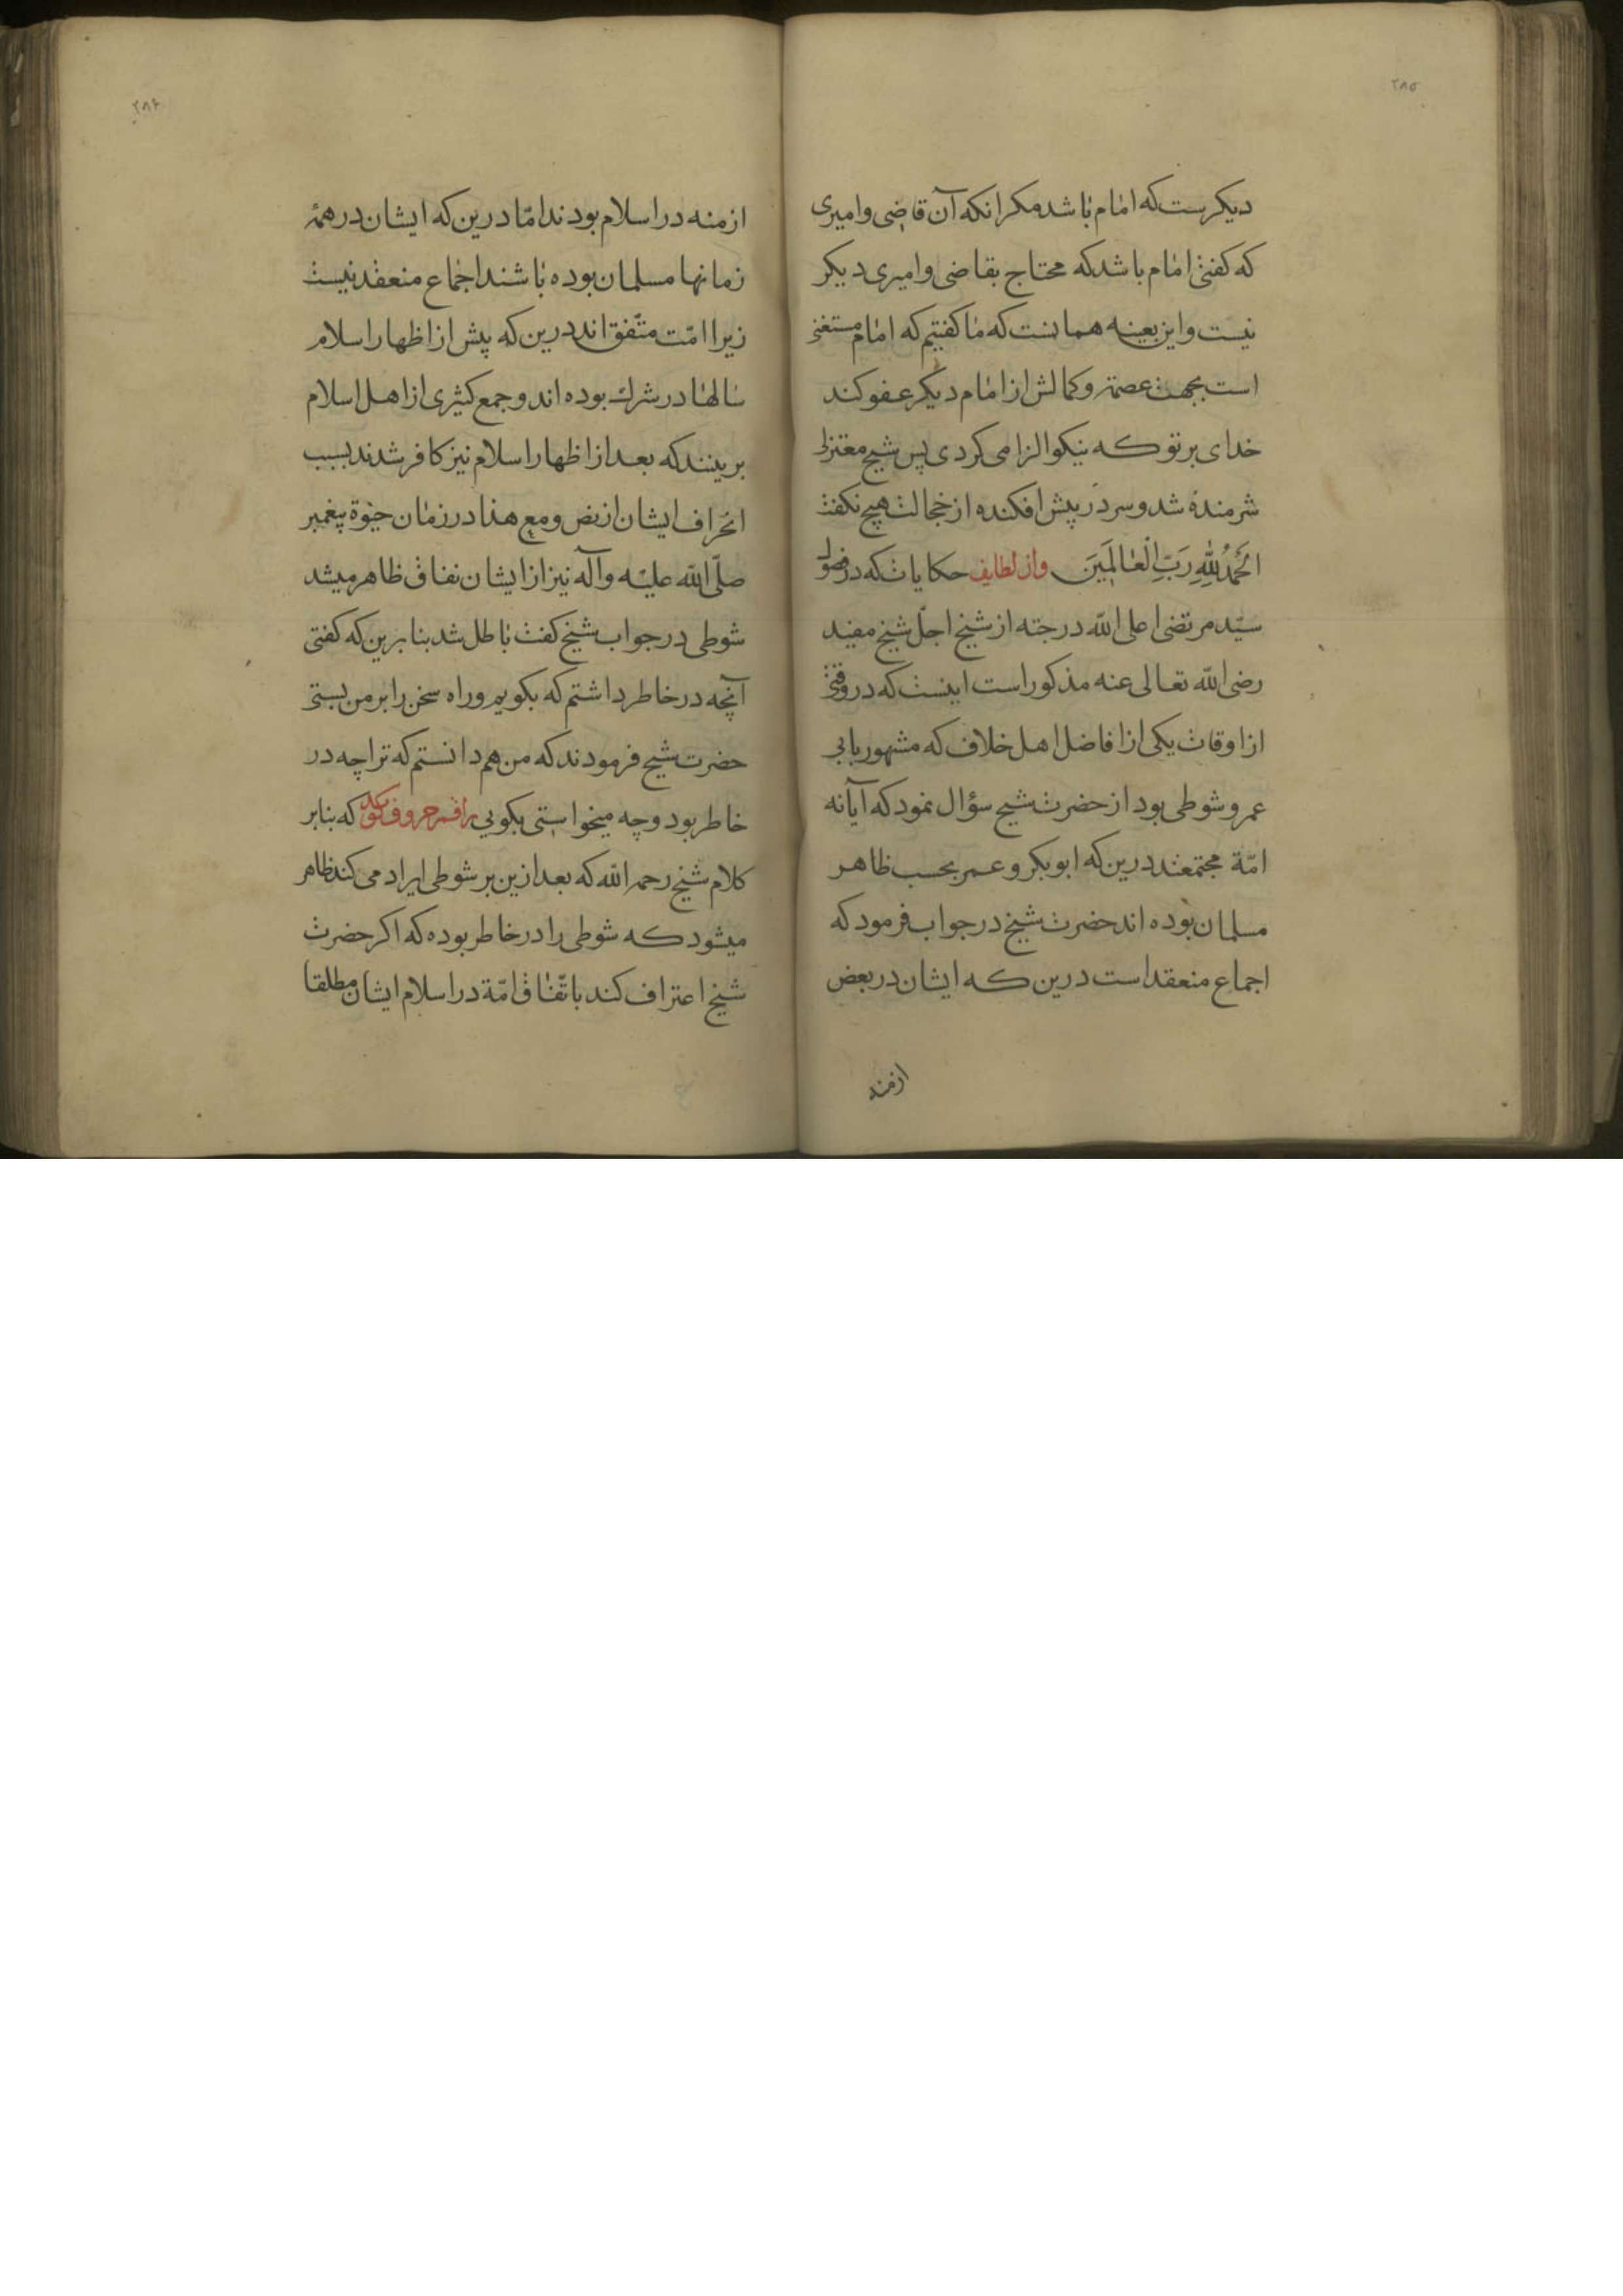 ۲۸۵
دیکرست که امام باشد مکر انکه آن قاضی و امیری
که کفتی امام باشد که محتاج بقاضی و امیری دیکر
نیست و این بعینه همانست که ما کفتیم که امام مستغنی
است بجهت عصمة و کمالش از امام دیکر عفو کند
خدای بر تو که نیکو الزامی کردی پس شیخ معتزلی
شرمنده شد و سر در پیش افکنده از خجالت هیچ نکفت
اَلْحَمْدُ لِلّٰهِ رَبِّ الْعَالَمِینَ و از لطایف حکایات که در فصول
سیّد مرتضی اعلی اللّه درجته از شیخ اجلّ شیخ مفید
رضی اللّه تعالی عنه مذکور است اینست که در وقتی
از اوقات یکی از افاضل اهل خلاف که مشهور بابی
عمرو شوطی بود از حضرت شیخ سؤال نمود که آیا نه
امّة مجتمعند درین که ابوبکر و عمر بحسب ظاهر
مسلمان بوده اند حضرت شیخ در جواب فرمود که
اجماع منعقد است درین که ایشان در بعض
ازمنه
۲۸۶
ازمنه در اسلام بودند امّا درین که ایشان در همهٔ
زمانها مسلمان بوده باشند اجماع منعقد نیست
زیرا امّت متّفق اند درین که پیش از اظهار اسلام
سالها در شرک بوده اند و جمع کثیری از اهل اسلام
برینند که بعد از اظهار اسلام نیز کافر شدند بسبب
انحراف ایشان از نص و مع هذا در زمان حیوة پیغمبر
صلّی اللّه علیه و آله نیز از ایشان نفاق ظاهر میشد
شوطی در جواب شیخ کفت باطل شد بنا برین که کفتی
آنچه در خاطر داشتم که بکویم و راه سخن را بر من بستی
حضرت شیخ فرمودند که من هم دانستم که ترا چه در
خاطر بود و چه میخواستی بکویی راقم حروف کوید که بنابر
کلام شیخ رحمه اللّه که بعد ازین بر شوطی ایراد می کند ظاهر
میشود که شوطی را در خاطر بوده که اکر حضرت
شیخ اعتراف کند باتّفاق امّة در اسلام ایشان مطلقا